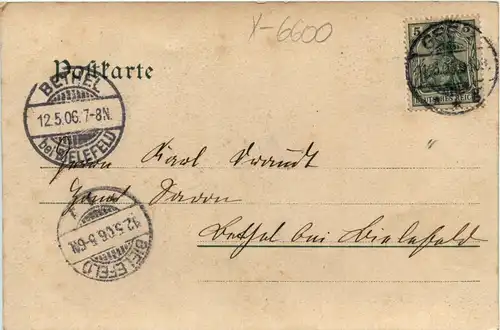 X-6600
Postkarte
5
BETHEL
12.5.06.7-8N.
bei BIELEFELD
Herrn Karl Brandt
Haus Saron
Bethel bei Bielefeld
12.5.06.5-6N.
BIELEFELD